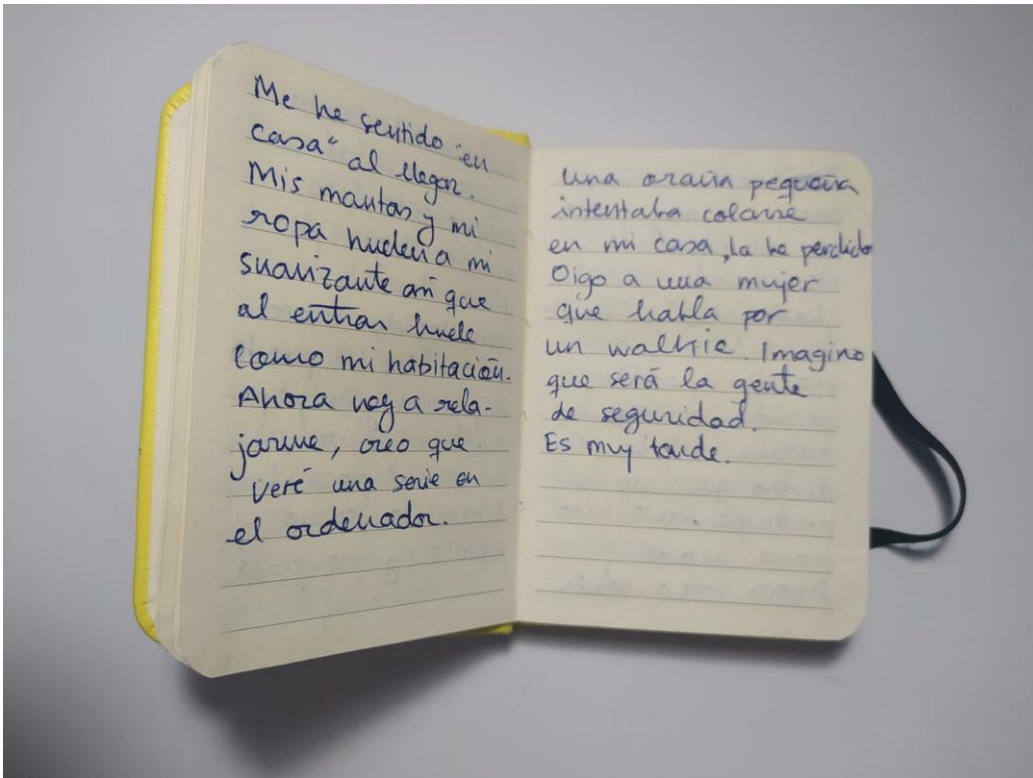 Me he sentido "en
casa" al llegar.
Mis mantas y mi
ropa huelen a mi
suavizante así que
al entrar huele
como mi habitación.
Ahora voy a rela-
jarme, creo que
veré una serie en
el ordenador.
una araña pequeña
intentaba colarse
en mi casa, la he perdido
Oigo a una mujer
que habla por
un walkie. Imagino
que será la gente
de seguridad.
Es muy tarde.